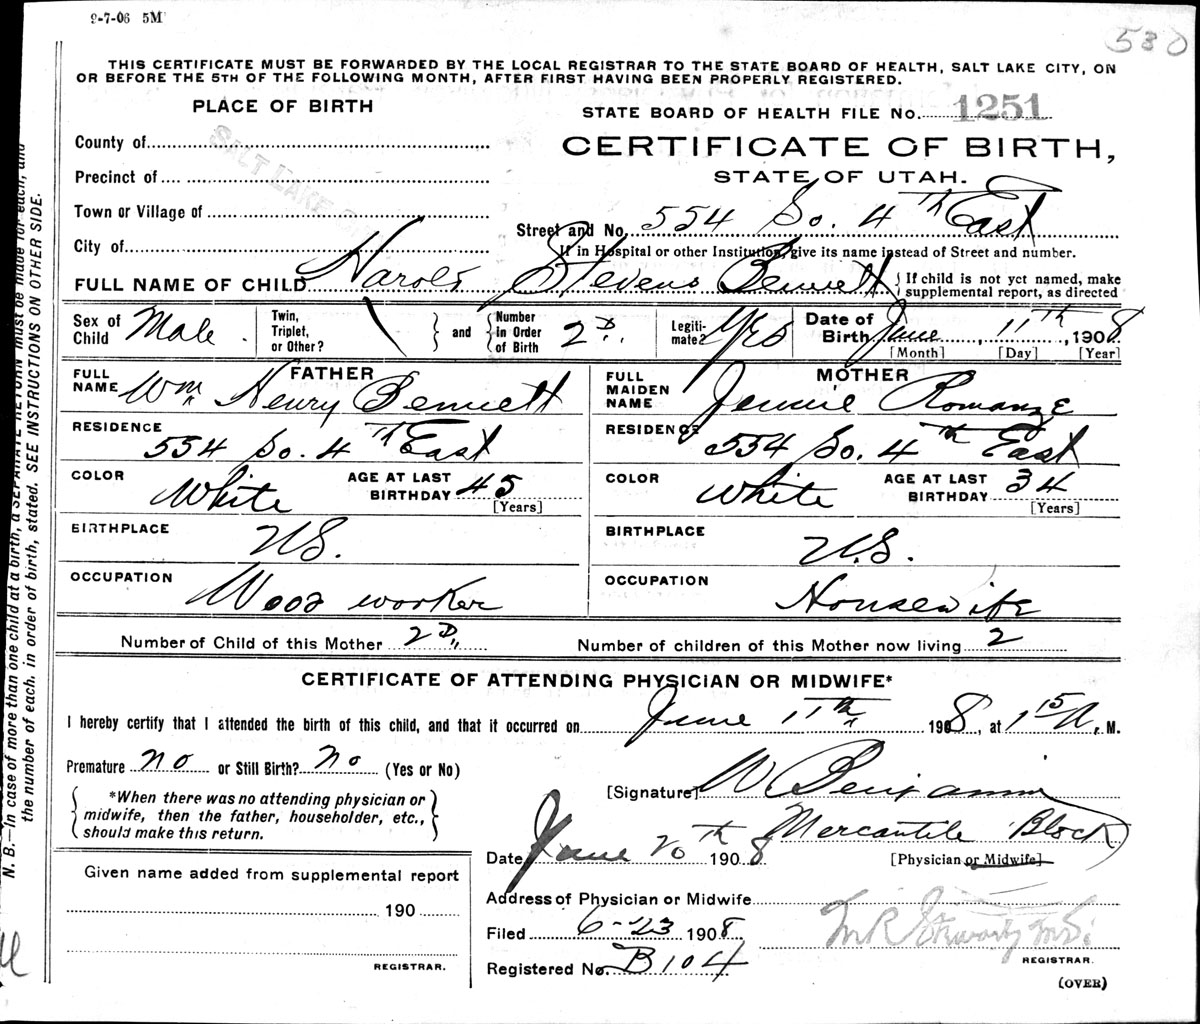 9-7-06 5M
530
THIS CERTIFICATE MUST BE FORWARDED BY THE LOCAL REGISTRAR TO THE STATE BOARD OF HEALTH, SALT LAKE CITY, ON
OR BEFORE THE 5TH OF THE FOLLOWING MONTH, AFTER FIRST HAVING BEEN PROPERLY REGISTERED.
PLACE OF BIRTH
STATE BOARD OF HEALTH FILE No. 1251
CERTIFICATE OF BIRTH,
STATE OF UTAH.
County of
SALT LAKE
Precinct of
Town or Village of
City of
Street and No. 554 So. 4th East
If in Hospital or other Institution, give its name instead of Street and number.
FULL NAME OF CHILD Harold Stevens Bennett { If child is not yet named, make
supplemental report, as directed
Sex of Child Male. Twin, Triplet, or Other? \ } and { Number in Order of Birth 2D. Legiti-mate? Yes Date of Birth June, 11th, 1908
[Month] [Day] [Year]
FATHER
FULL NAME Wm Henry Bennett
RESIDENCE 554 So. 4th East
COLOR White AGE AT LAST BIRTHDAY 45
[Years]
BIRTHPLACE U.S.
OCCUPATION Wood worker
MOTHER
FULL MAIDEN NAME Jennie Romanze
RESIDENCE 554 So. 4th East
COLOR White AGE AT LAST BIRTHDAY 34
[Years]
BIRTHPLACE U.S.
OCCUPATION Housewife
Number of Child of this Mother 2D. Number of children of this Mother now living 2
CERTIFICATE OF ATTENDING PHYSICIAN OR MIDWIFE*
I hereby certify that I attended the birth of this child, and that it occurred on June 11th 1908, at 1 15 A. M.
Premature no or Still Birth? no (Yes or No)
*When there was no attending physician or
midwife, then the father, householder, etc.,
should make this return.
[Signature] W Benjamin
Mercantile Block
Date June 20th 1908 [Physician or Midwife]
Given name added from supplemental report
190
REGISTRAR.
Address of Physician or Midwife
Filed 6-23 1908
Registered No. B104
M.D.
REGISTRAR.
(OVER)
N. B.—In case of more than one child at a birth, a SEPARATE RETURN must be made for each, and
the number of each, in order of birth, stated. SEE INSTRUCTIONS ON OTHER SIDE.